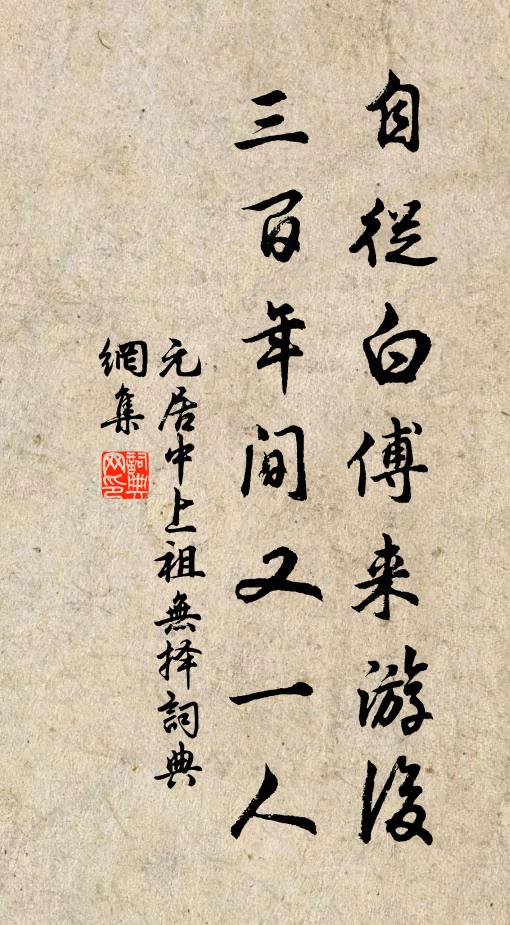 自從白傅来游後
三百年間又一人
元居中上祖無择詞典
網集
詞典
网印